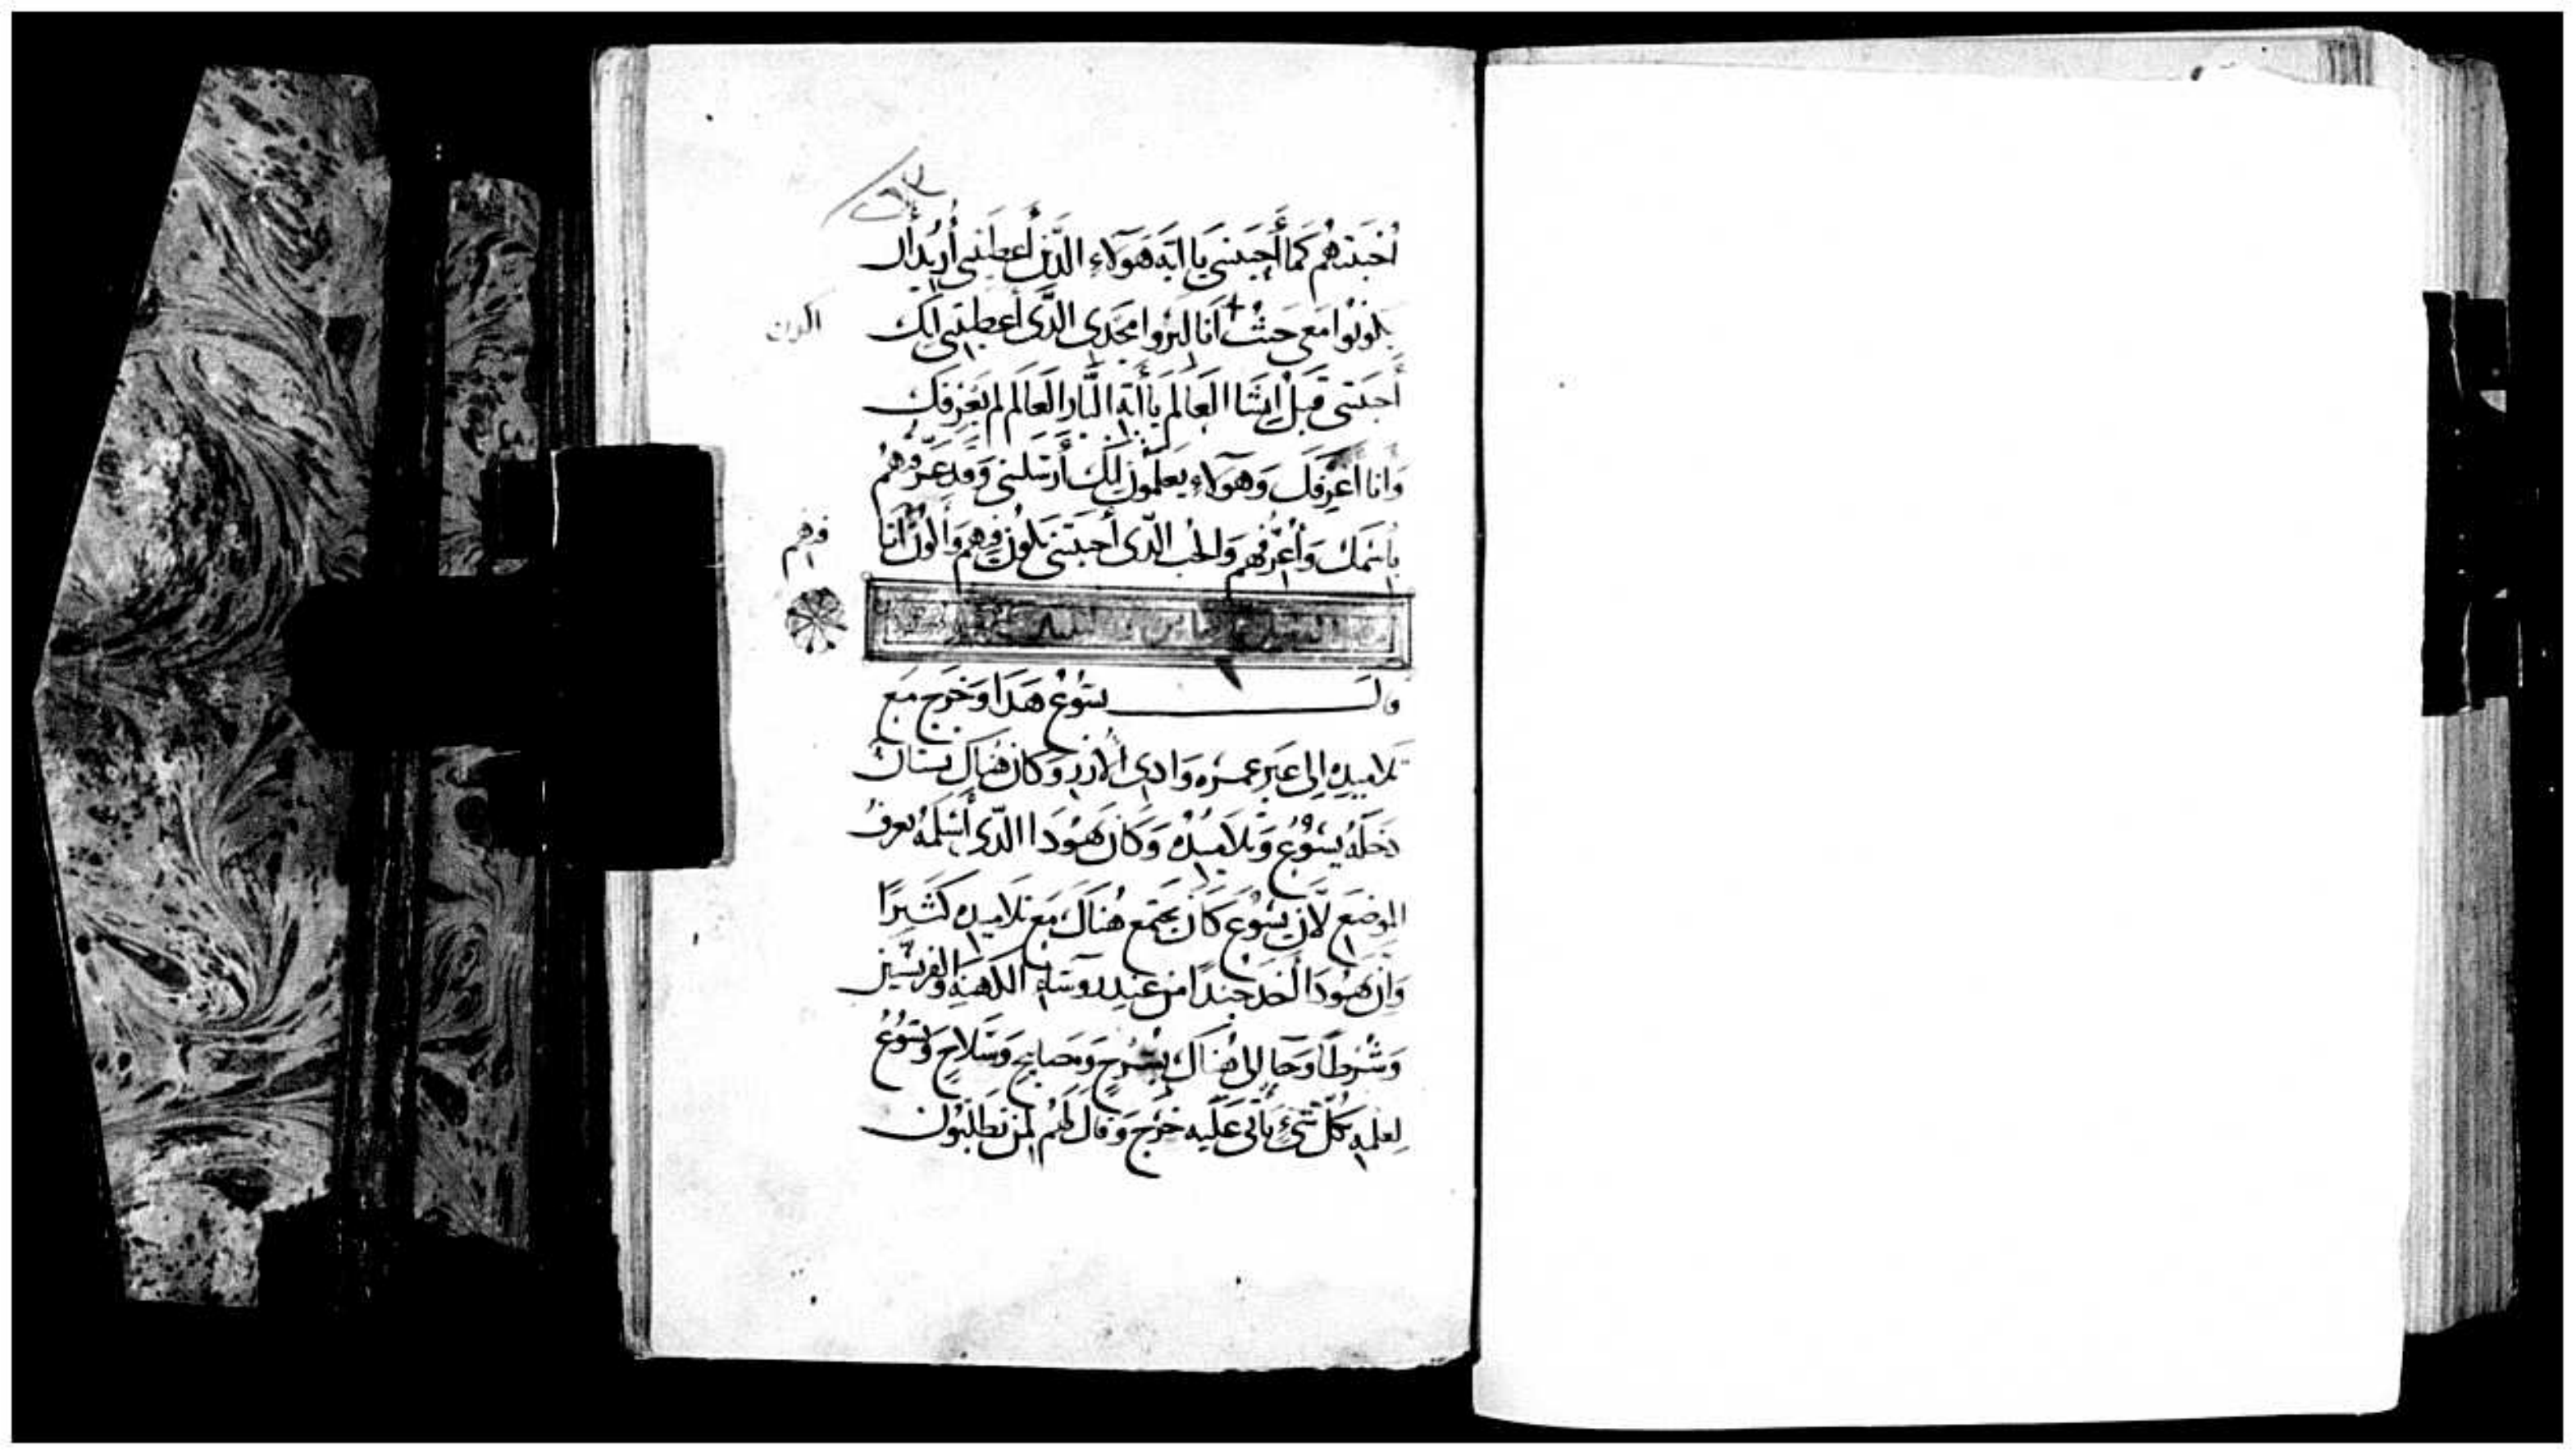 أحببتهم كما أحببتني يا ابه هولاء الذين أعطيتني أريد أن
يكونوا معي حيث أنا ليروا مجدي الذي أعطيتني لانك
أحببتني قبل إنشا العالم يا أبة البار العالم لم يعرفك
وانا أعرفك وهولاء يعلمون انك أرسلتني وقد عرفوهم
بأسمك وأعرفهم والحب الذي أحببتني يكون فيهم وأكون أنا
فيهم
قال يسوع هذا وخرج مع
تلاميذه إلى عبر وادى الارز وكان هناك بستان
دخله يسوع وتلاميذه وكان يهودا الذي أسلمه يعرف
الموضع لأن يسوع كان يجتمع هناك مع تلاميذه كثيرا
وان يهودا أخذ جندا من عند روساء الكهنة والفريسيين
وشرطا وجا إلى هناك بسرج ومصابيح وسلاح ويسوع
لعلمه بكل شيء يأتي عليه خرج وقال لهم لمن تطلبون